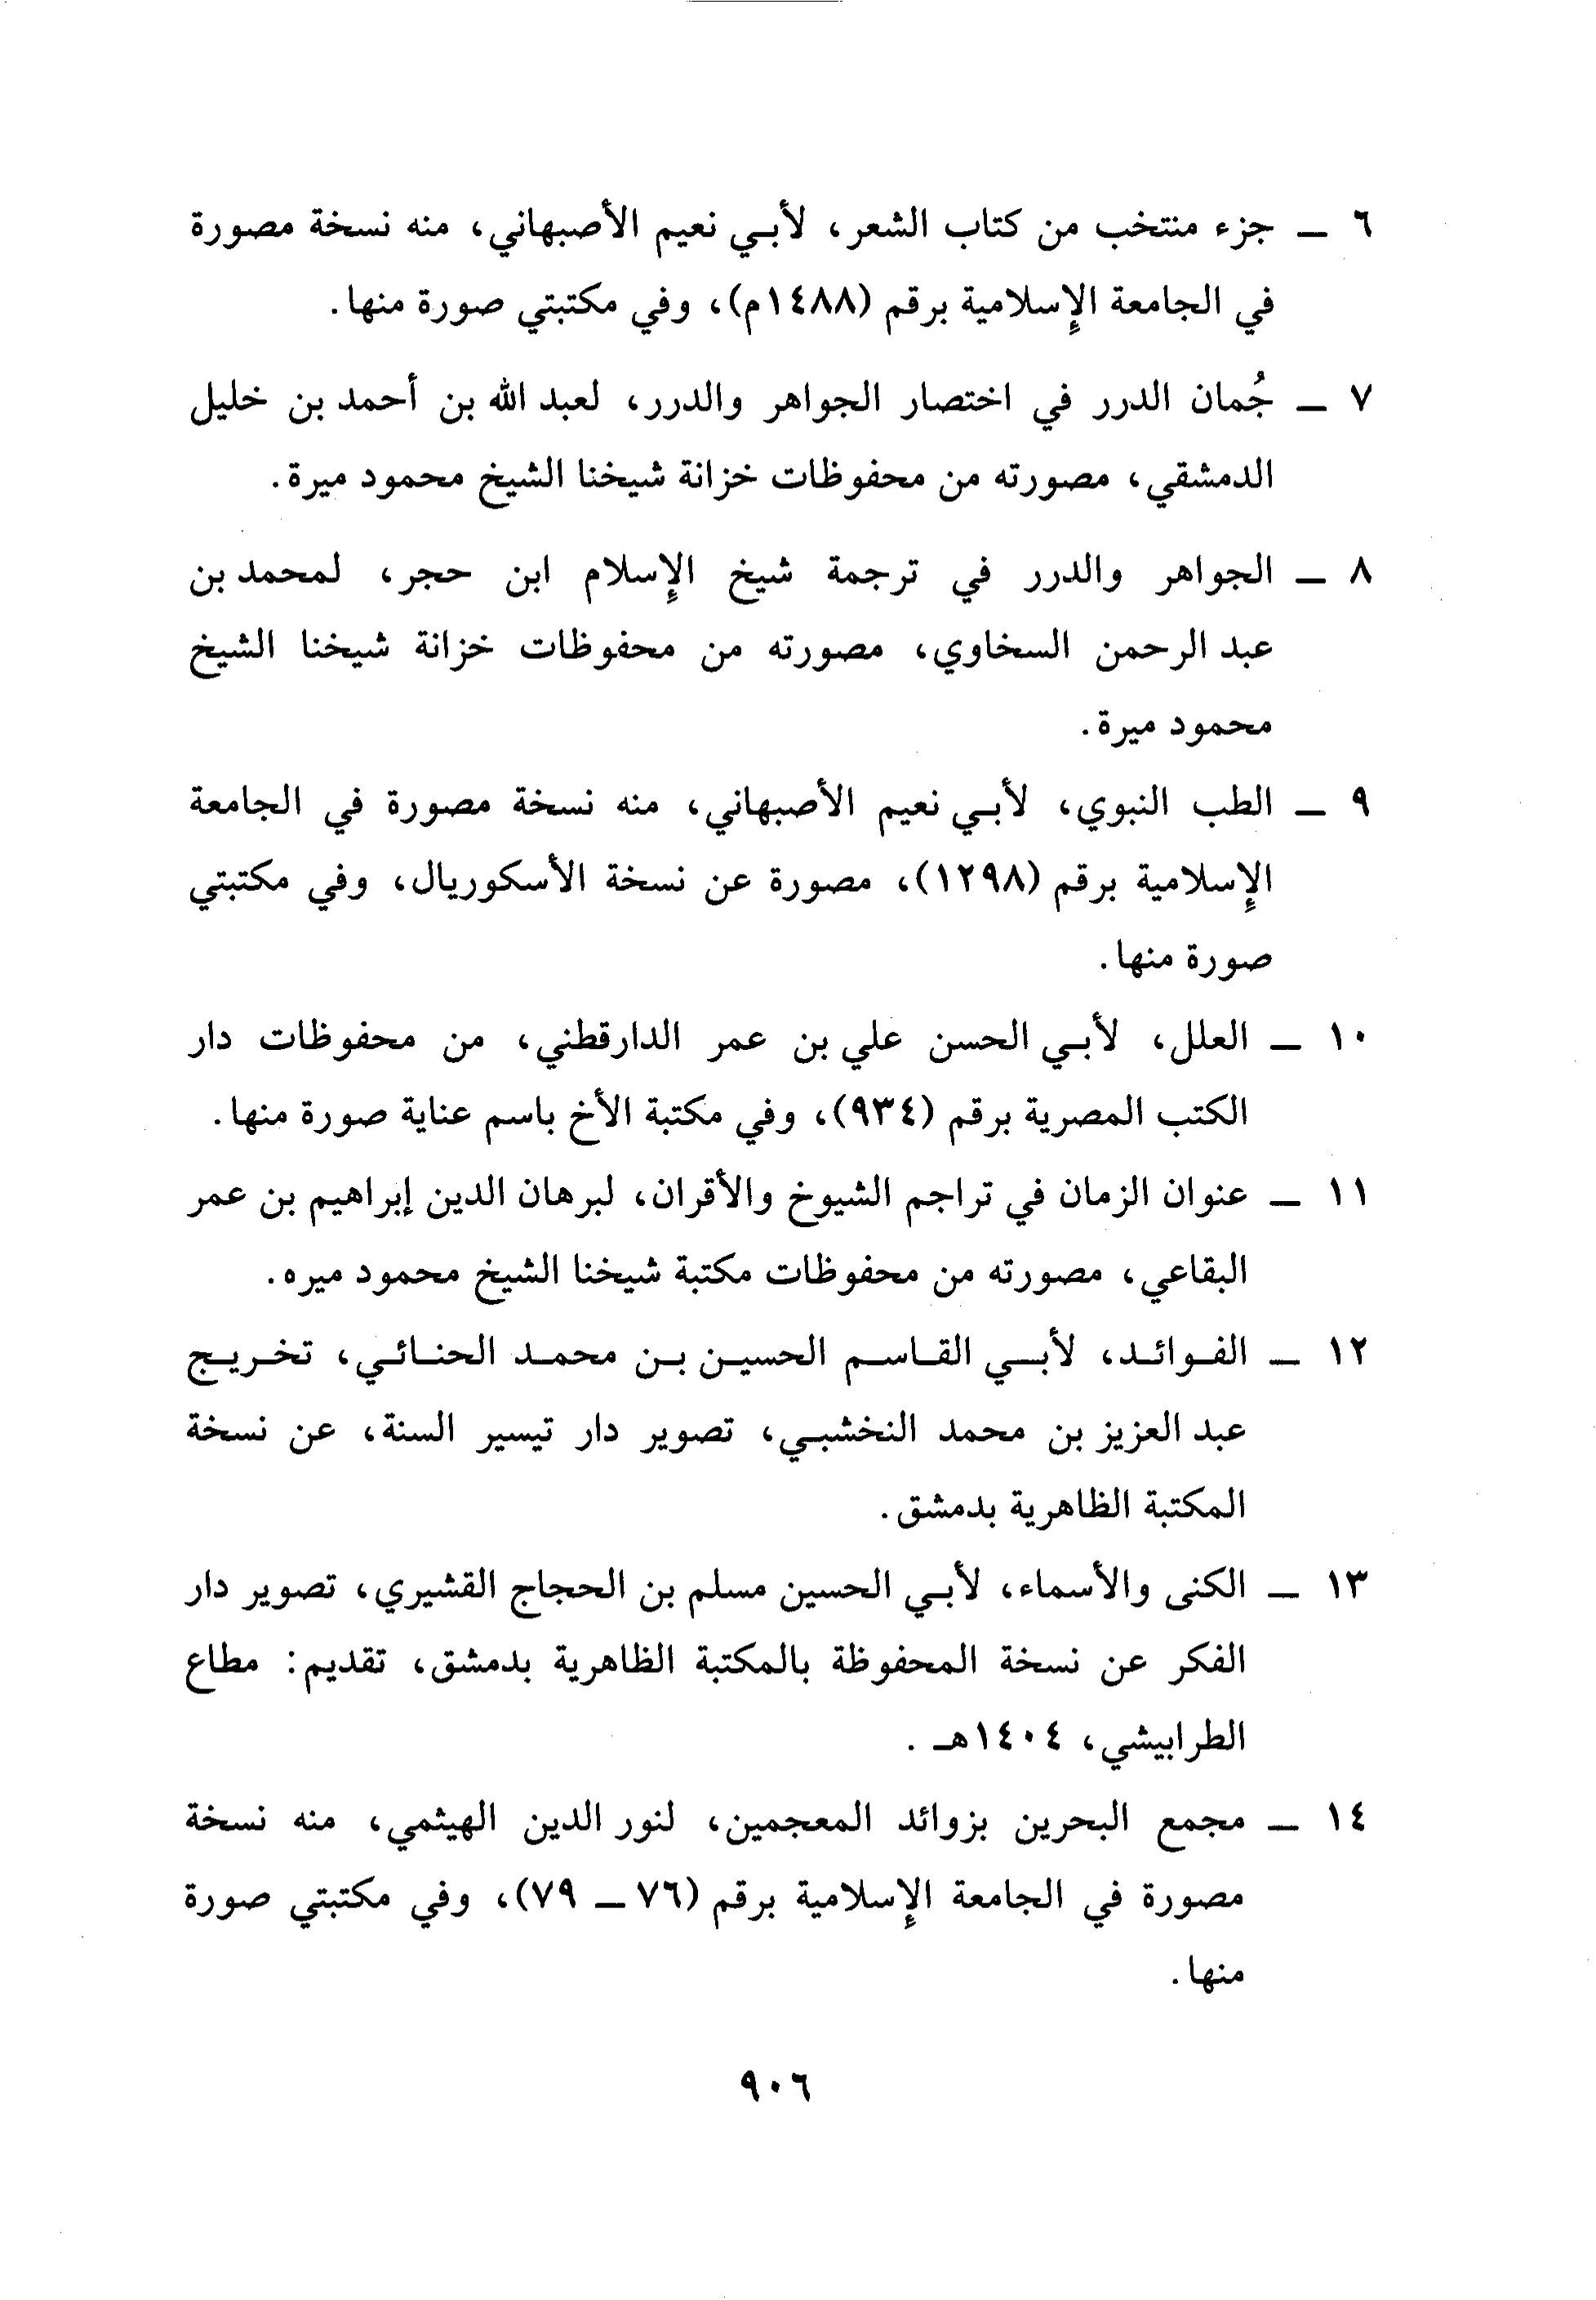 ٦ ــ جزء منتخب من كتاب الشعر، لأبي نعيم الأصبهاني، منه نسخة مصورة
في الجامعة الإسلامية برقم (١٤٨٨م)، وفي مكتبتي صورة منها.
٧ ــ جُمان الدرر في اختصار الجواهر والدرر، لعبد الله بن أحمد بن خليل
الدمشقي، مصورته من محفوظات خزانة شيخنا الشيخ محمود ميرة.
٨ ــ الجواهر والدرر في ترجمة شيخ الإسلام ابن حجر، لمحمد بن
عبد الرحمن السخاوي، مصورته من محفوظات خزانة شيخنا الشيخ
محمود ميرة.
٩ ــ الطب النبوي، لأبي نعيم الأصبهاني، منه نسخة مصورة في الجامعة
الإسلامية برقم (١٢٩٨)، مصورة عن نسخة الأسكوريال، وفي مكتبتي
صورة منها.
١٠ ــ العلل، لأبي الحسن علي بن عمر الدارقطني، من محفوظات دار
الكتب المصرية برقم (٩٣٤)، وفي مكتبة الأخ باسم عناية صورة منها.
١١ ــ عنوان الزمان في تراجم الشيوخ والأقران، لبرهان الدين إبراهيم بن عمر
البقاعي، مصورته من محفوظات مكتبة شيخنا الشيخ محمود ميره.
١٢ ــ الفوائد، لأبي القاسم الحسين بن محمد الحنائي، تخريج
عبد العزيز بن محمد النخشبي، تصوير دار تيسير السنة، عن نسخة
المكتبة الظاهرية بدمشق.
١٣ ــ الكنى والأسماء، لأبي الحسين مسلم بن الحجاج القشيري، تصوير دار
الفكر عن نسخة المحفوظة بالمكتبة الظاهرية بدمشق، تقديم: مطاع
الطرابيشي، ١٤٠٤هـ .
١٤ ــ مجمع البحرين بزوائد المعجمين، لنور الدين الهيثمي، منه نسخة
مصورة في الجامعة الإسلامية برقم (٧٦ ــ ٧٩)، وفي مكتبتي صورة
منها.
٩٠٦